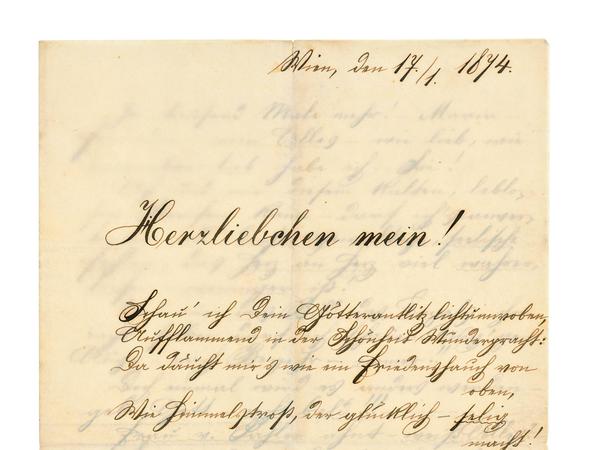 Wien, den 17./1. 1874.
Herzliebchen mein!
Schau' ich Dein Götterantlitz lichtumwoben,
Aufflammend in der Schönheit Wunderpracht:
Da däucht mir's wie ein Friedenshauch von
oben,
Wie Himmelstrost, der glücklich – selig
macht!